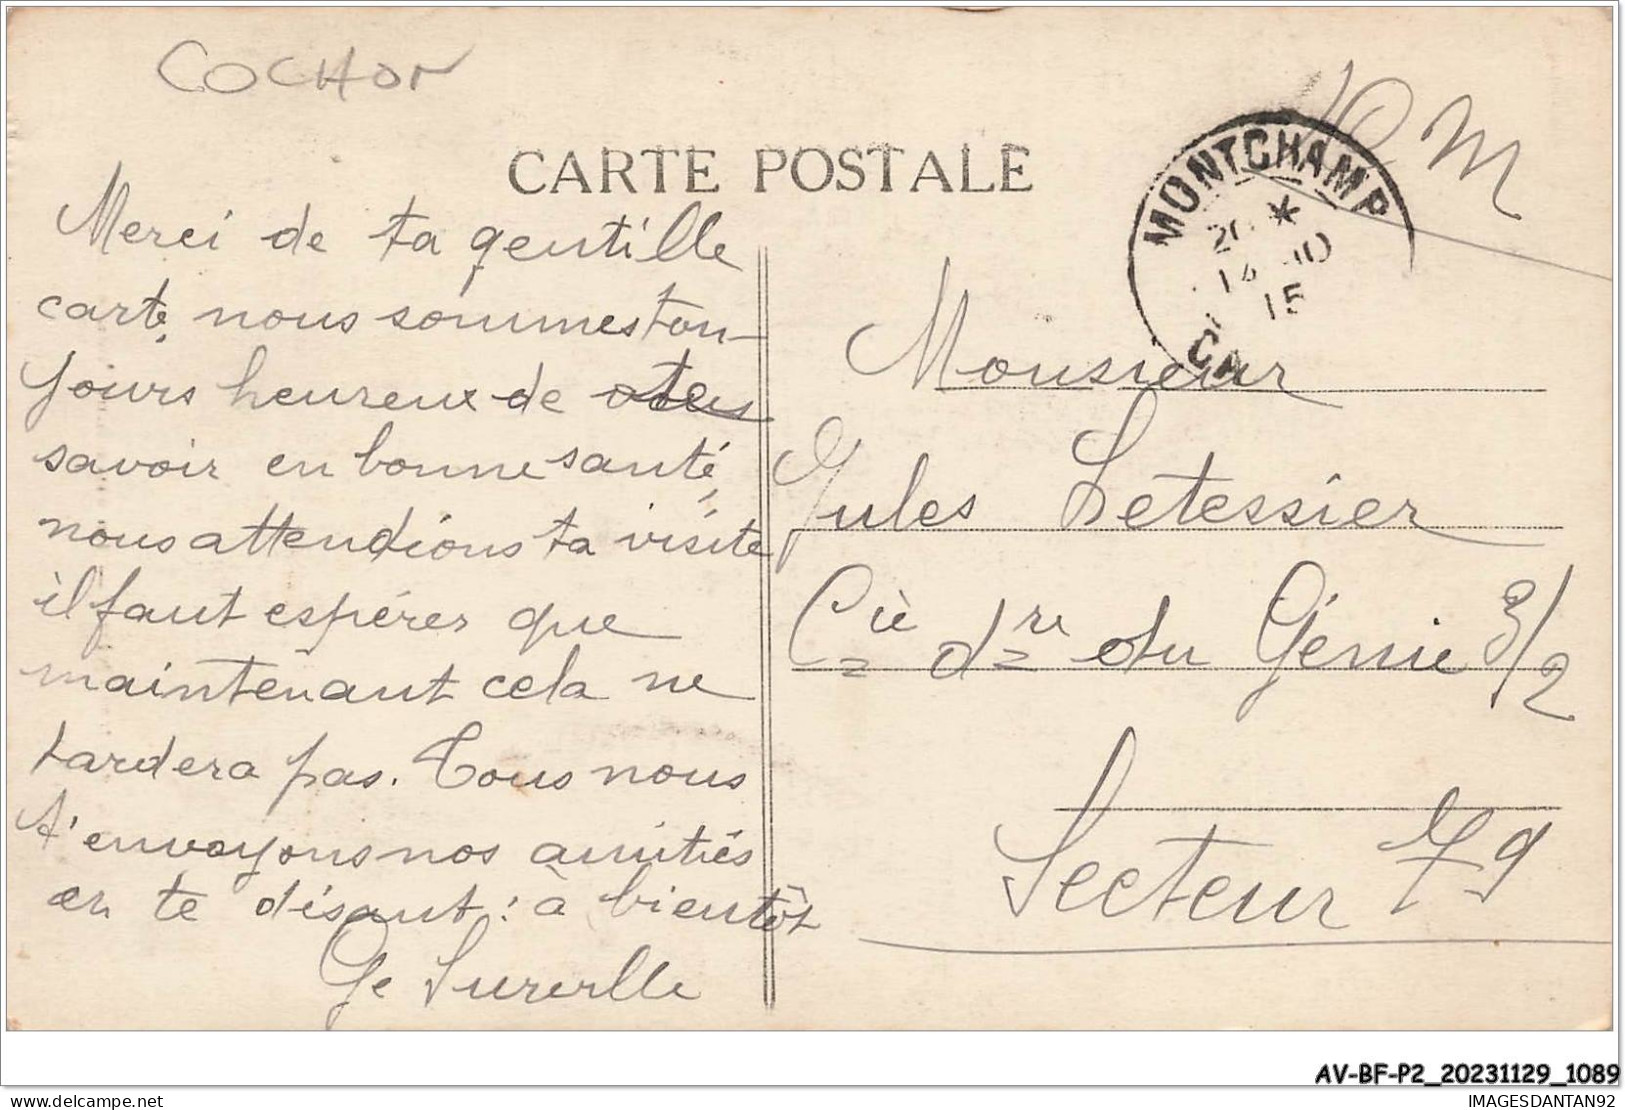 COCHON
FM
CARTE POSTALE
MONTCHAMP
20 *
14 10
15
CA
Merci de ta gentille
carte, nous sommes tou-
jours heureux de
savoir en bonne santé,
nous attendions ta visite
il faut espérer que
maintenant cela ne
tardera pas. Tous nous
t'envoyons nos amitiés
en te disant : à bientôt
Ge Surville
Monsieur
Jules Letessier
Cie dre du Génie 3/2
Secteur 79
AV-BF-P2_20231129_1089
delcampe.net
IMAGESDANTAN92